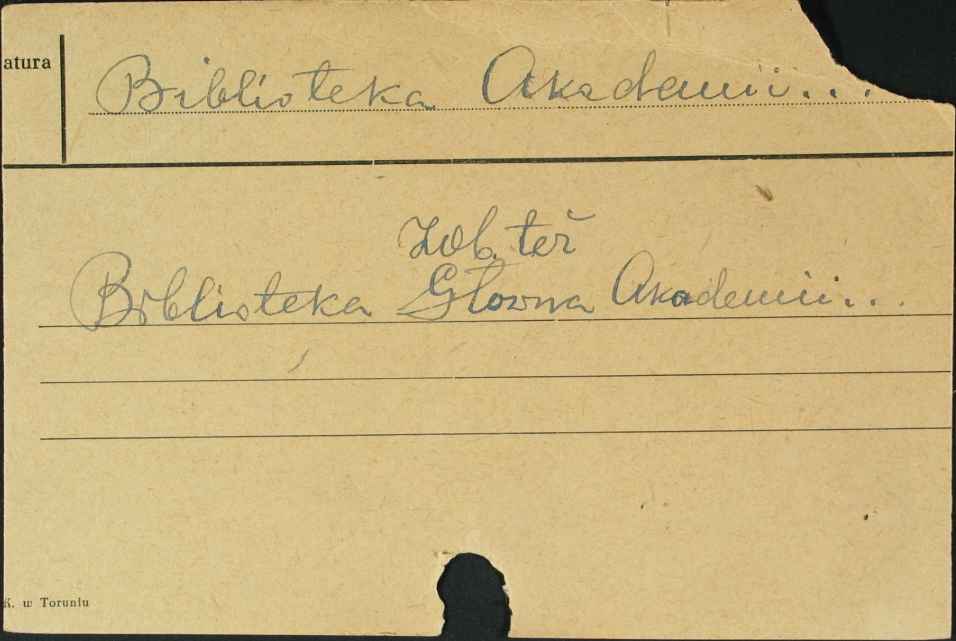 atura
Biblioteka Akademii...
Zob. też
Biblioteka Główna Akademii...
K. w Toruniu